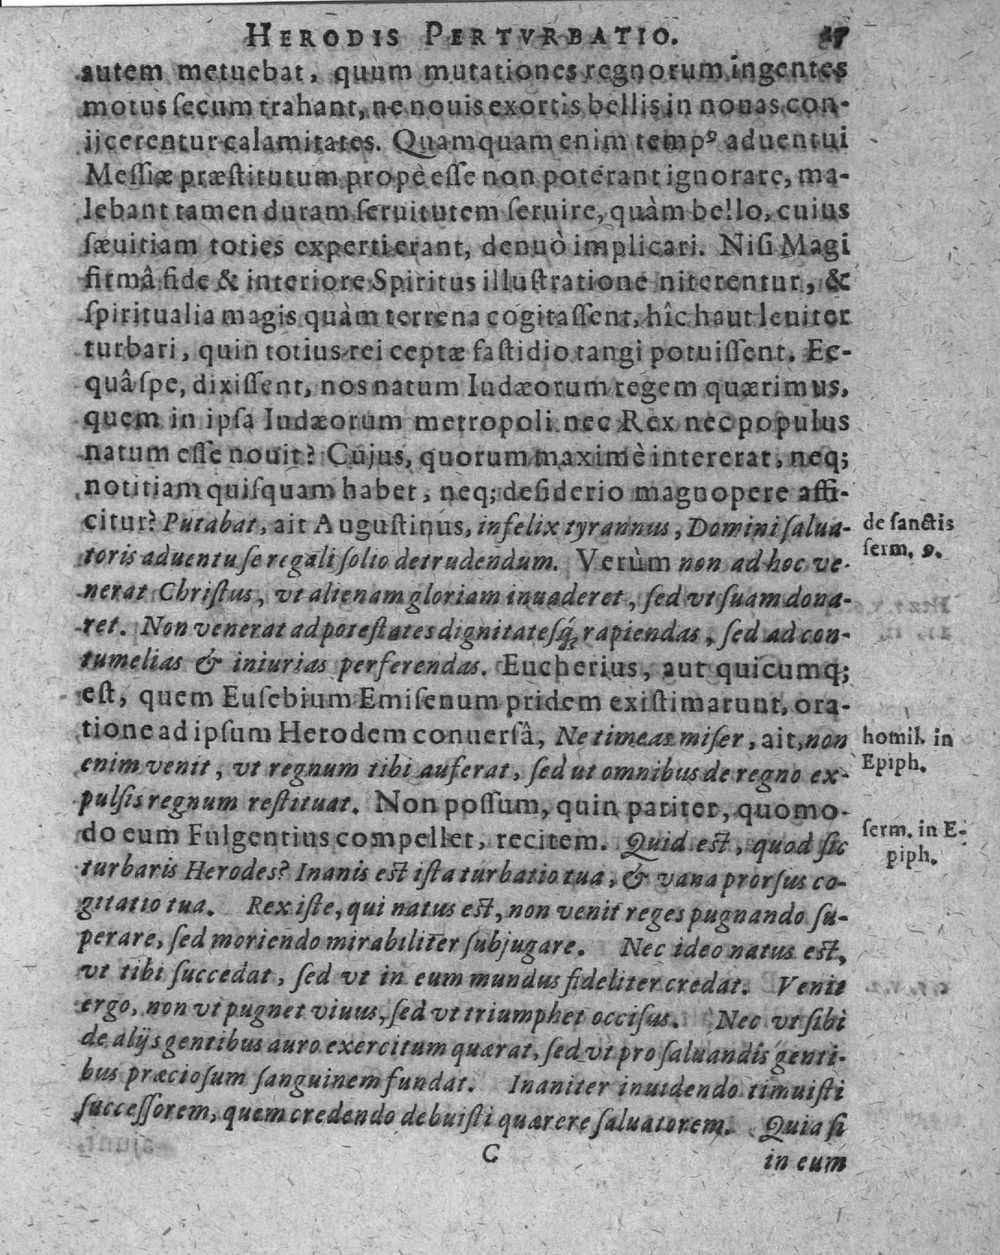 HERODIS PERTVRBATIO. 17
autem metuebat, quum mutationes regnorum ingentes
motus ſecum trahant, ne nouis exortis bellis in nouas con-
ijcerentur calamitates. Quamquam enim tempꝰ aduentui
Meſſiæ præſtitutum propè eſſe non poterant ignorare, ma-
lebant tamen duram ſeruitutem ſeruire, quàm bello, cuius
ſæuitiam toties experti erant, denuò implicari. Niſi Magi
firmâ fide & interiore Spiritus illuſtratione niterentur, &
ſpiritualia magis quàm terrena cogitaſſent, hîc haut leniter
turbari, quin totius rei ceptæ faſtidio tangi potuiſſent. Ec-
quâ ſpe, dixiſſent, nos natum Iudæorum regem quærimus,
quem in ipſa Iudæorum metropoli nec Rex nec populus
natum eſſe nouit? Cujus, quorum maximè intererat, neq;
notitiam quiſquam habet, neq; deſiderio magnopere affi-
citur? Putabat, ait Auguſtinus, infelix tyrannus, Domini ſalua-
toris aduentu ſe regali ſolio detrudendum. Verùm non ad hoc ve-
nerat Chriſtus, vt alienam gloriam inuaderet, ſed vt ſuam dona-
ret. Non venerat ad poteſtates dignitateſq́; rapiendas, ſed ad con-
tumelias & iniurias perferendas. Eucherius, aut quicumq;
eſt, quem Euſebium Emiſenum pridem exiſtimarunt, ora-
tione ad ipſum Herodem conuerſâ, Ne timeas miſer, ait, non
enim venit, vt regnum tibi auferat, ſed ut omnibus de regno ex-
pulſis regnum reſtituat. Non poſſum, quin pariter, quomo-
do eum Fulgentius compellet, recitem. Quid eſt, quod ſic
turbaris Herodes? Inanis eſt iſta turbatio tua, & vana prorſus co-
gitatio tua. Rex iſte, qui natus eſt, non venit reges pugnando ſu-
perare, ſed moriendo mirabiliter ſubjugare. Nec ideo natus eſt,
vt tibi ſuccedat, ſed vt in eum mundus fideliter credat. Venit
ergo, non vt pugnet viuus, ſed vt triumphet occiſus. Nec vt ſibi
de alijs gentibus auro exercitum quærat, ſed vt pro ſaluandis genti-
bus præcioſum ſanguinem fundat. Inaniter inuidendo timuiſti
ſucceſſorem, quem credendo debuiſti quærere ſaluatorem. Quia ſi
C
in eum
de ſanctis
ſerm. 9.
homil. in
Epiph.
ſerm. in E-
piph.